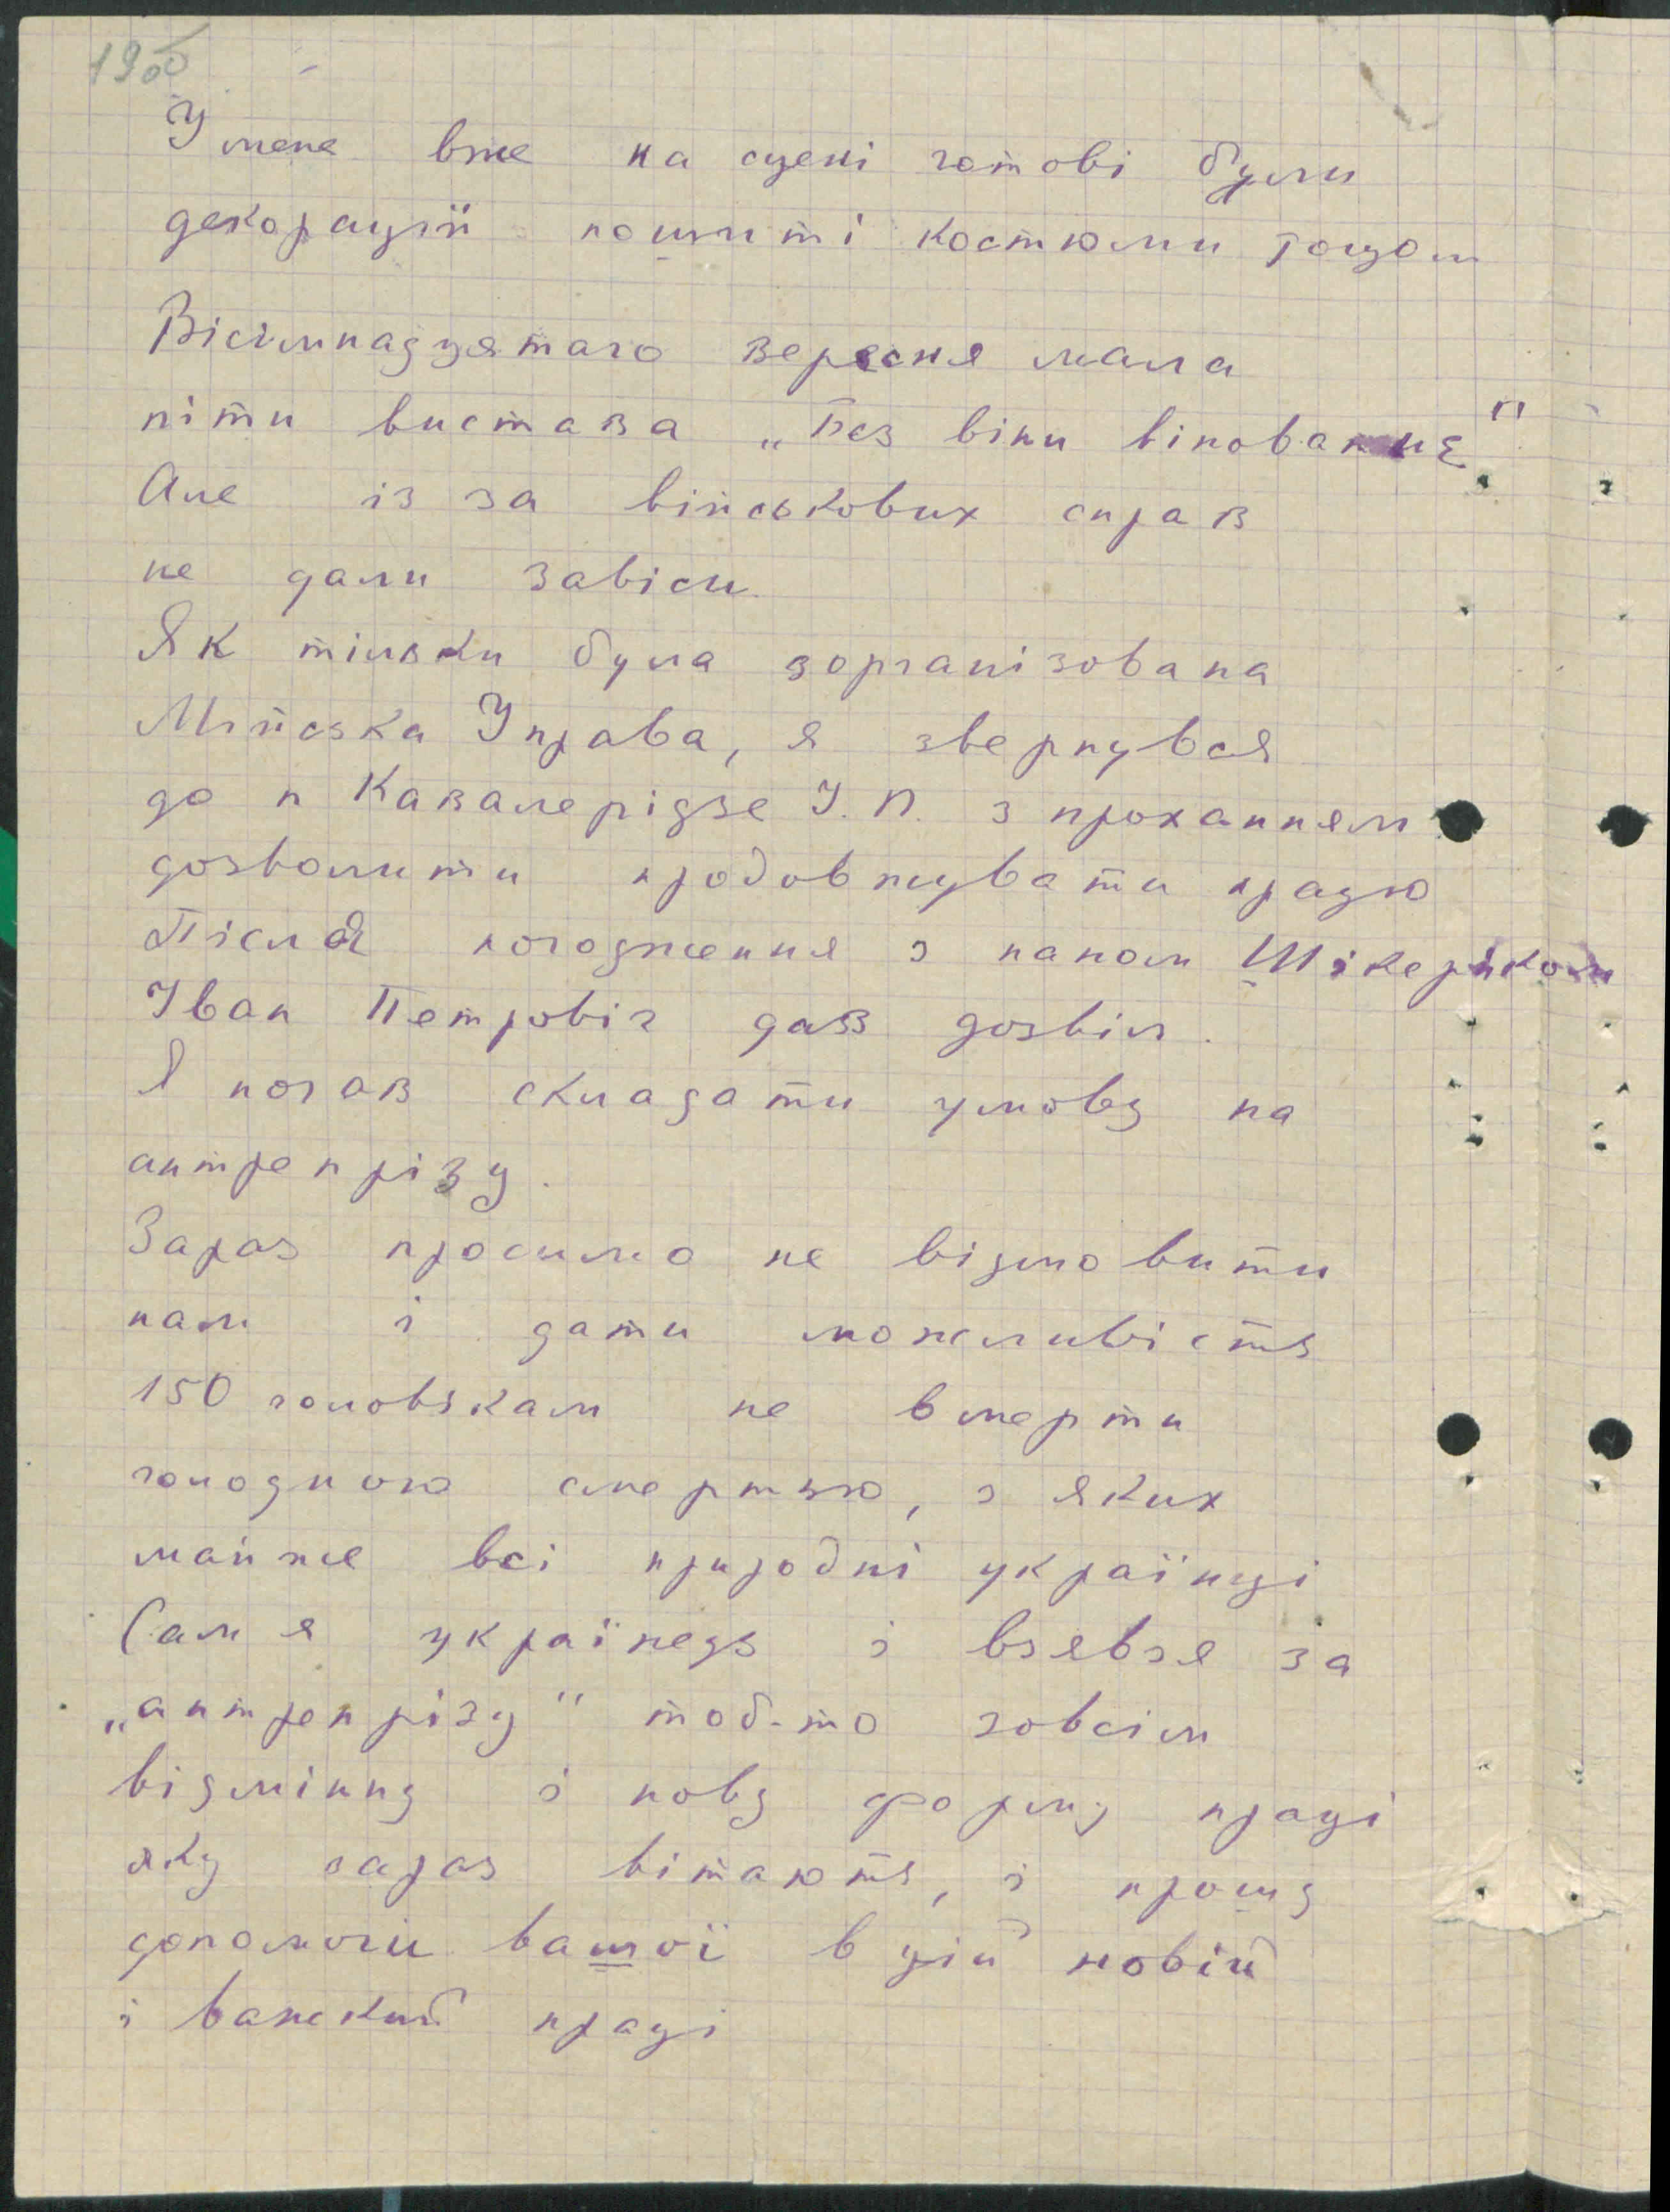 1900
У мене вже на сцені готові були
декорації пошиті костюми тощо
Вісімнадцятаго вересня мала
піти вистава „Без віни вінование"
Але із за військових справ
не дали завіси.
Як тільки була зорганізована
Мійська Управа, я звернувся
до п Кавалерідзе І. П. з проханням
дозволити продовжувати працю
Після погодження з паном Шікеріком
Іван Петровіч дав дозвіл.
Я почав складати умову на
антрепрізу.
Зараз просимо не відмовити
нам і дати можливість
150 головькам не вмерти
голодною смертью, з яких
майже всі природні українці
Сам я українець і взявся за
„антрепрізу" тоб-то зовсім
відмінну і нову форму праці
яку зараз вітають, і прошу
допомоги вашої в цій новій
і важкий праці